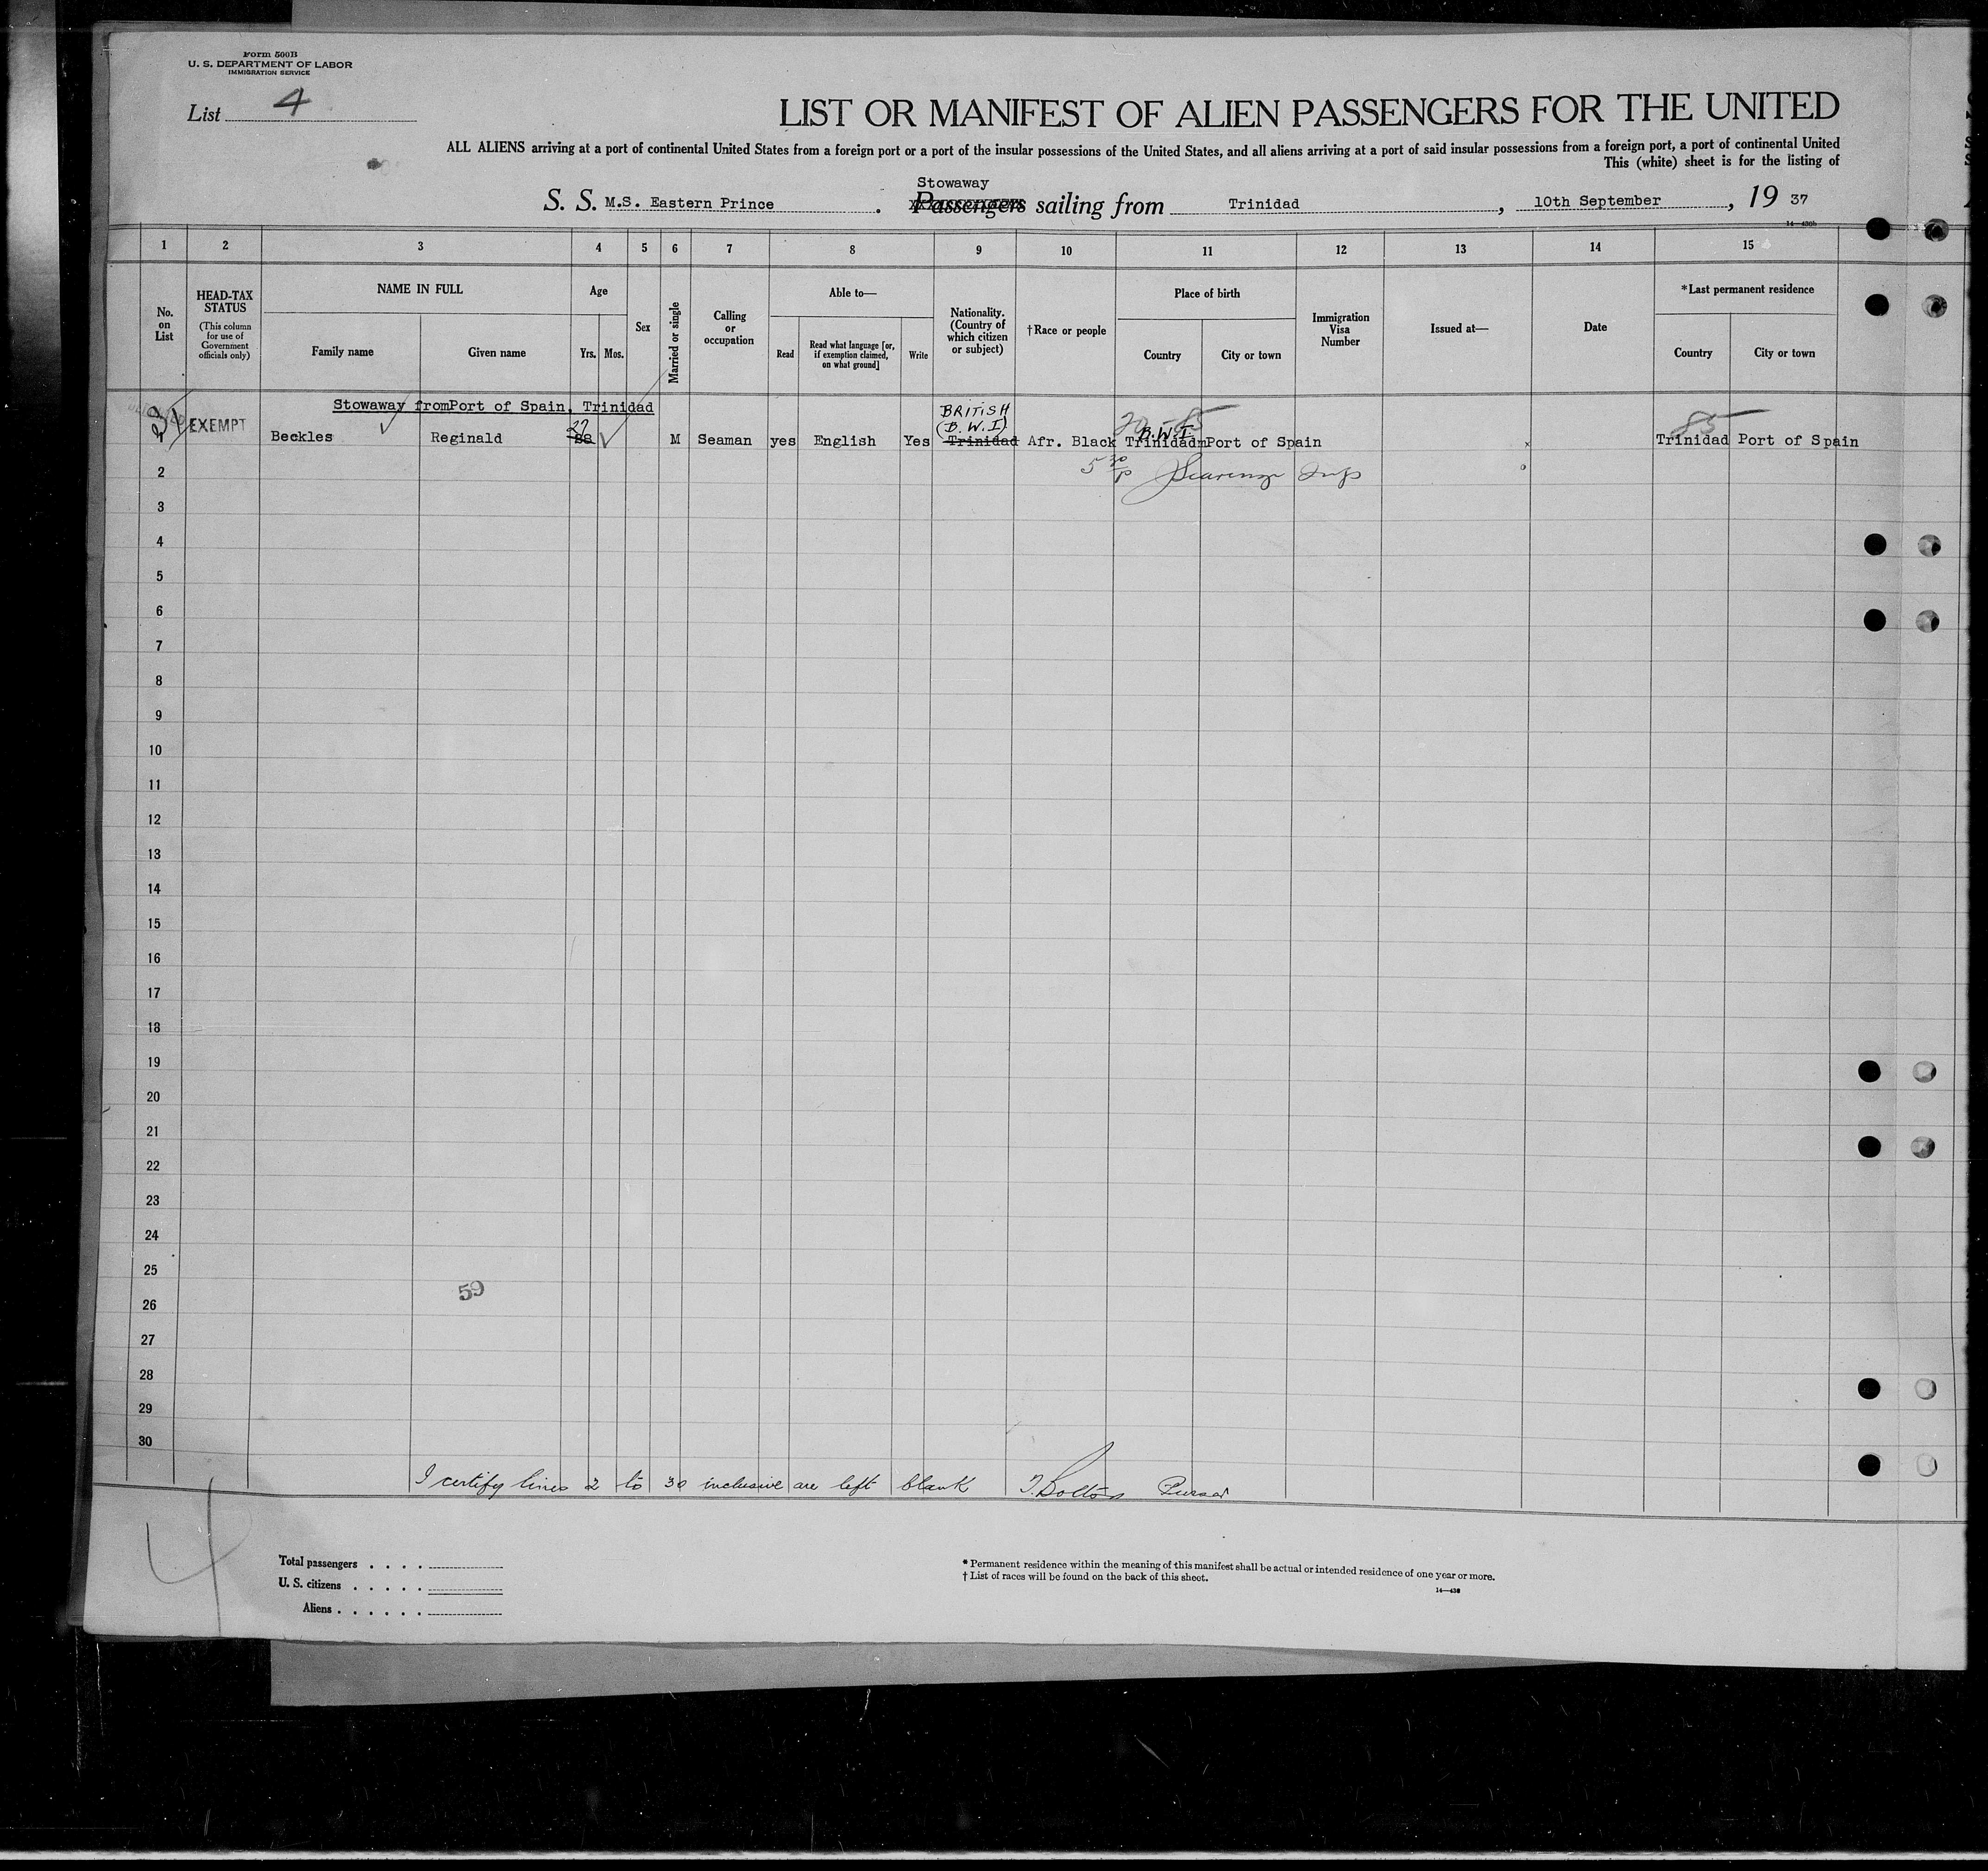 Form 500B
U. S. DEPARTMENT OF LABOR
IMMIGRATION SERVICE
List 4
LIST OR MANIFEST OF ALIEN PASSENGERS FOR THE UNITED
ALL ALIENS arriving at a port of continental United States from a foreign port or a port of the insular possessions of the United States, and all aliens arriving at a port of said insular possessions from a foreign port, a port of continental United
This (white) sheet is for the listing of
Stowaway
S. S. M.S. Eastern Prince . Passengers sailing from Trinidad , 10th September , 19 37
14—430b
1 2 3 4 5 6 7 8 9 10 11 12 13 14 15
No. on List
HEAD-TAX STATUS
(This column for use of Government officials only)
NAME IN FULL
Family name
Given name
Age
Yrs.
Mos.
Sex
Married or single
Calling or occupation
Able to—
Read
Read what language [or, if exemption claimed, on what ground]
Write
Nationality. (Country of which citizen or subject)
†Race or people
Place of birth
Country
City or town
Immigration Visa Number
Issued at—
Date
*Last permanent residence
Country
City or town
Stowaway fromPort of Spain, Trinidad
BRITISH
(B.W.I)
85
EXEMPT Beckles Reginald M Seaman yes English Yes Trinidad Afr. Black Trinidad B.W.I Port of Spain Trinidad Port of Spain
2
3
4
5
6
7
8
9
10
11
12
13
14
15
16
17
18
19
20
21
22
23
24
25
59
26
27
28
29
30
I certify lines 2 to 30 inclusive are left blank T. Bolton Purser
4
Total passengers . . . .
U. S. citizens . . . . .
Aliens . . . . . .
* Permanent residence within the meaning of this manifest shall be actual or intended residence of one year or more.
† List of races will be found on the back of this sheet.
14—430